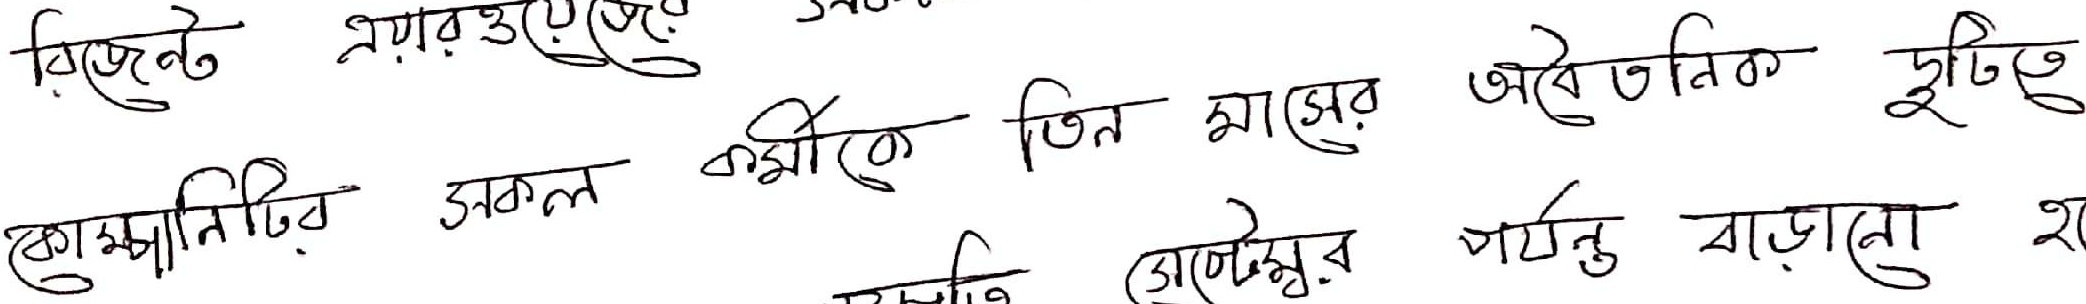 রিজেন্ট এয়ারওয়েজের
কোম্পানিটির সকল কর্মীকে তিন মাসের অবৈতনিক ছুটিতে
সেপ্টেম্বর পর্যন্ত বাড়ানো